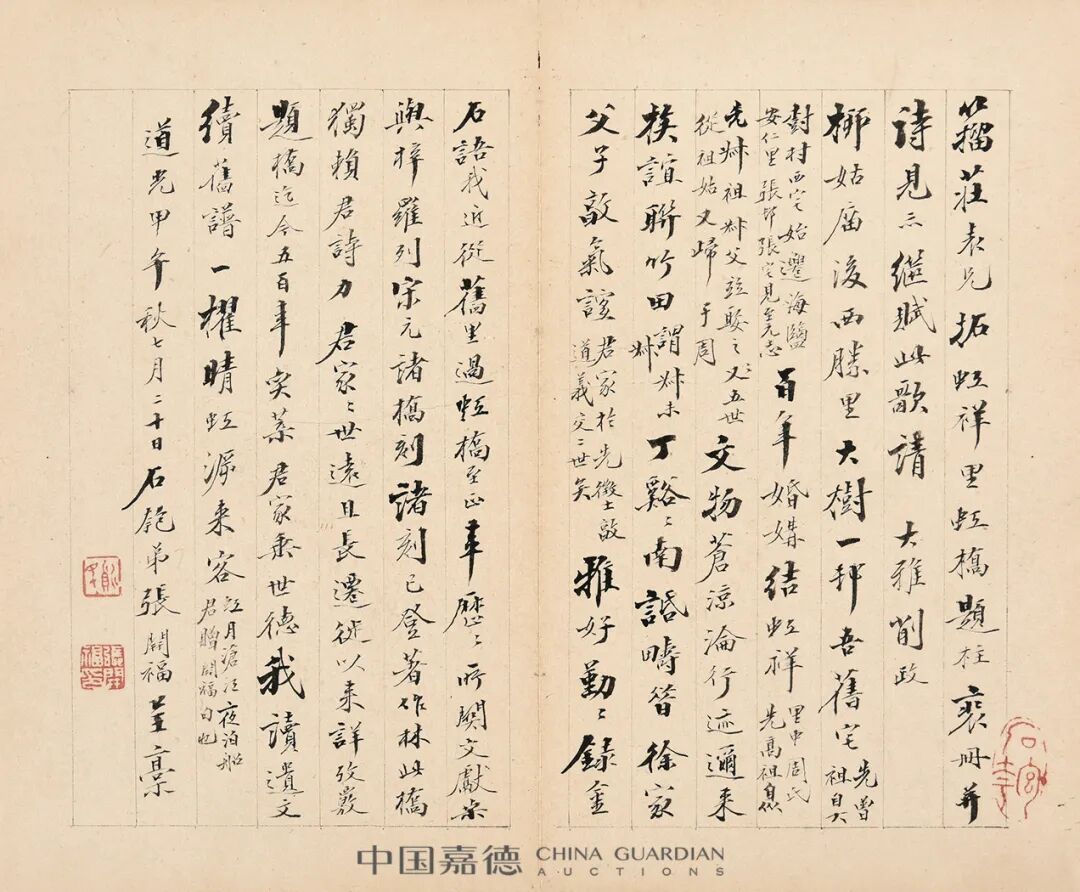 籀莊表兄拓虹祥里虹橋題柱裒冊并
詩見示繼賦此歌請 大雅削政
柳姑廟後西勝里大樹一邨吾舊宅先曾祖自大
樹村西宅始遷海鹽安仁里張邨張宅見至元志百年婚媾結虹祥里中周氏先高祖
先叔祖叔父並娶之又五世從祖姑又歸于周文物蒼涼淪行迹邇來
族誼聯竹田謂叔未叔丁谿谿南話疇昔徐家
父子敵氣誼君家於先徵士敵道義交二世矣雅好勤勤錄金
石語我近從舊里過虹橋至正年歷歷所關文獻采
與梓羅列宋元諸橋刻諸刻已登著作林此橋
獨賴君詩力君家家世遠且長遷徙以來詳攷覈
題橋迄今五百年突葉君家乘世德我讀遺文
續舊譜一櫂晴虹源來客江月滄江夜泊船君贈開福句也
道光甲午秋七月二十日石匏弟張開福呈稾
張開福印
中国嘉德 CHINA GUARDIAN
AUCTIONS